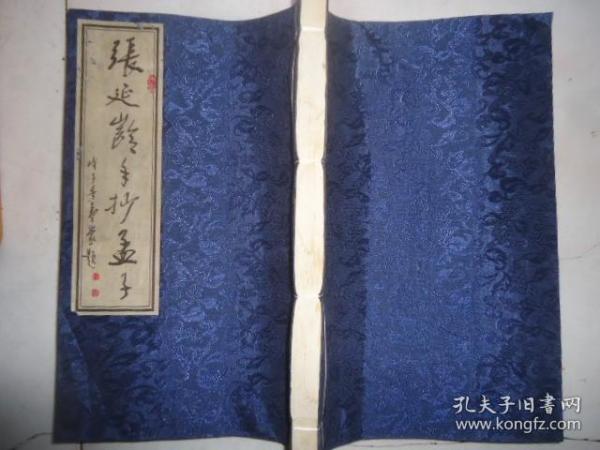 張延齡手抄孟子
孔夫子旧書网
www.kongfz.com